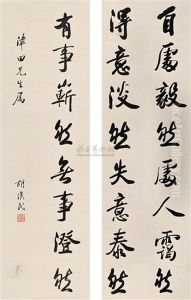 自處毅然處人靄然
得意淡然失意泰然
有事蕲然無事澄然
澤田先生屬
胡漢民